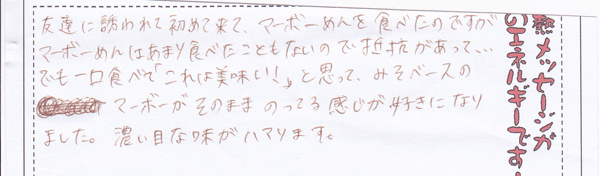 友達に誘われて初めて来て、マーボーめんを食べたのですが
マーボーめんはあまり食べたこともないので抵抗があって、、、
でも一口食べて「これは美味い!」と思って、みそベースの
マーボーがそのままのってる感じが好きになり
ました。濃い目な味がハマります。
熱メッセージが
いエネルギーです!